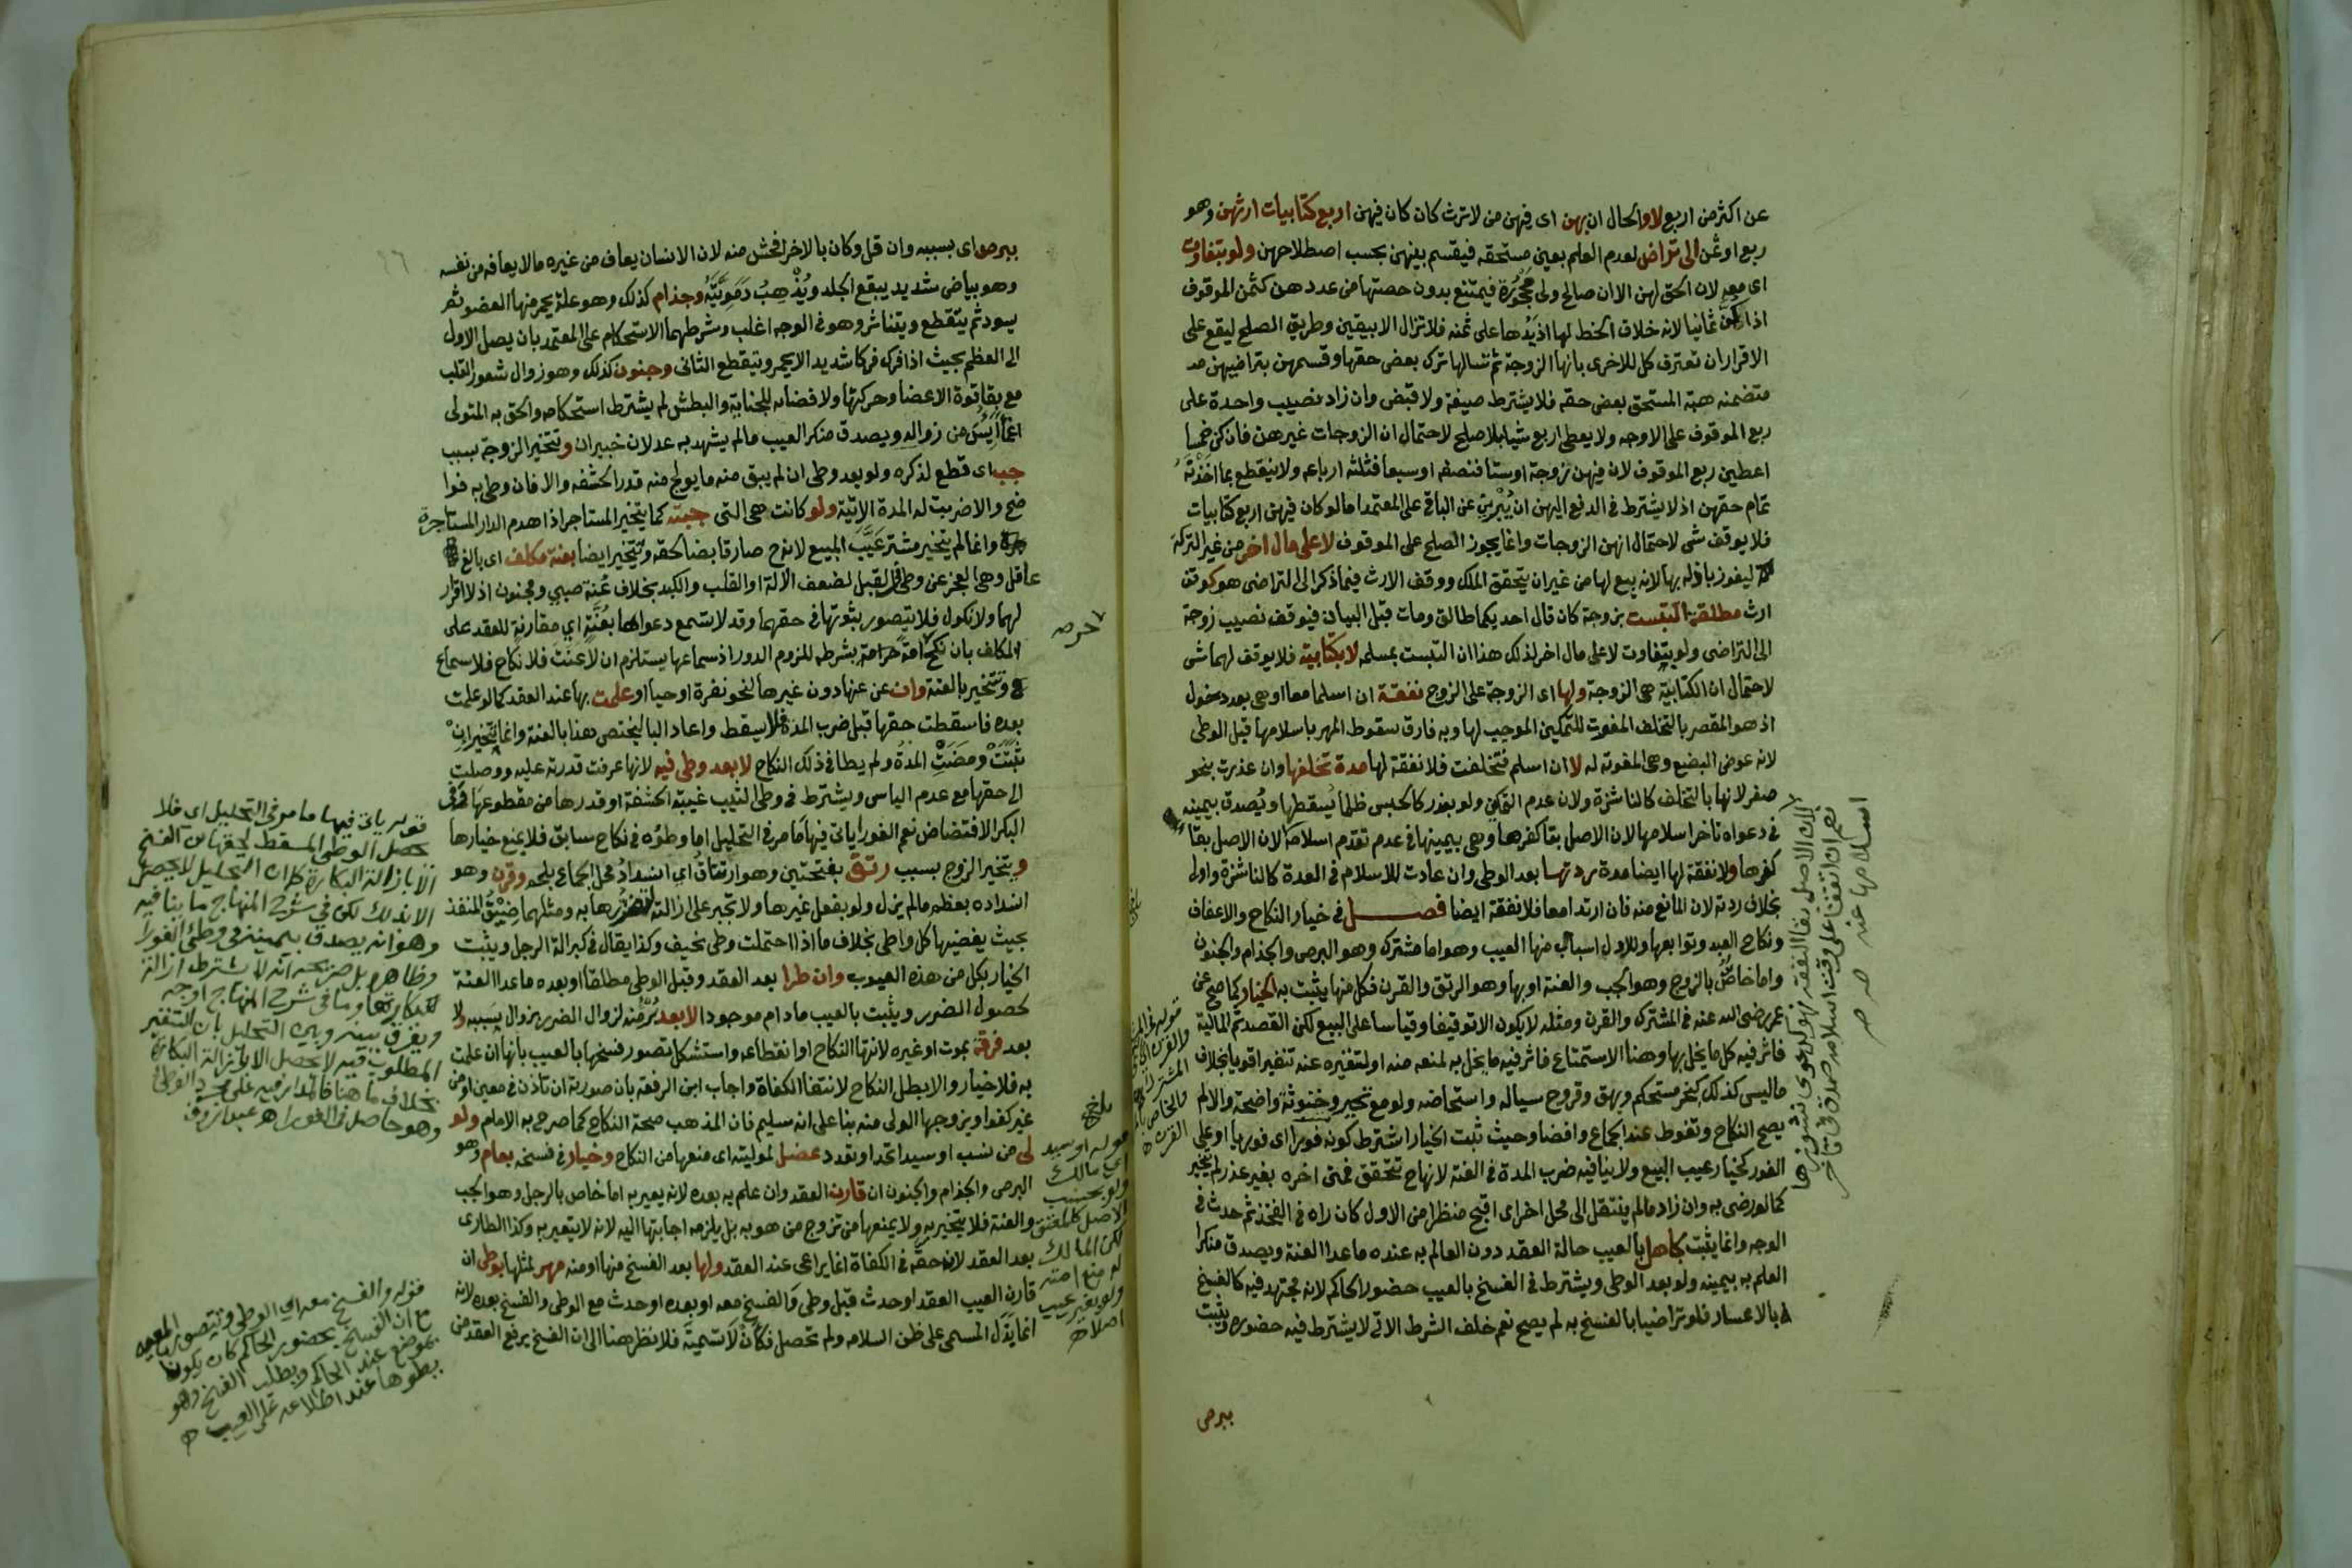 عن اكثر من اربع لا والحال ان بهن اى فيهن من لا ترث كان كان فيهن اربع كتابيات ارثهن وهو
ربع او ثمن الى تراض لعدم العلم بعين مستحقه فيقسم بينهن بحسب اصطلاحهن ولو بتفاوت
لان الحق لهن الا ان صالح ولى محجورة فيمتنع بدون حصتها من عددهن كثمن الموقوف
اذا كن ثمانيا لانه خلاف الحظ لها اذ يدها على ثمنه فلا تزال الا بيقين وطريق الصلح ليقع على
الاقرار ان تعترف كل للاخرى بانها الزوجة ثم تسالها ترك بعض حقها وقسمهن بتراضيهن
متضمنه هبة المستحق بعض حقه فلا يشترط صيغة ولا قبض وان زاد نصيب واحدة على
ربع الموقوف على الاوجه ولا يعطى اربع شيا بلا صلح لاحتمال ان الزوجات غيرهن فان كن خمسا
اعطين ربع الموقوف لان فيهن زوجة او ستا فنصفه او سبعا فثلثة ارباعه ولا ينقطع بما اخذته
تمام حقهن اذ لا يشترط فى الدفع اليهن ان يبرين عن الباقى على المعتمد اما لو كان فيهن اربع كتابيات
فلا يوقف شى لاحتمال انهن الزوجات وانما يجوز الصلح على الموقوف لا على مال اخر من غير التركة
ليفوز باذله بها لانه بيع لها من غير ان يتحقق الملك ووقف الارث فيما ذكر الى التراضى هو كوقف
ارث مطلقة التبست بزوجة كان قال احديكما طالق ومات قبل البيان فيوقف نصيب زوجة
الى التراضى ولو بتفاوت لا على مال اخر لذلك هذا ان التبست بمسلمه لا بكتابية فلا يوقف لهما شى
لاحتمال ان الكتابية هى الزوجة ولها اى الزوجة على الزوج نفقة ان اسلما معا او هى بعد دخول
اذ هو المقصر بالتخلف المفوت للتمكين الموجب لها وبه فارق سقوط المهر باسلامها قبل الوطى
لانه عوض البضع وهى المفوته له لا ان اسلم فتخلفت فلا نفقة لها مدة تخلفها وان عذرت بنحو
صغر لانها بالتخلف كالناشزة ولان عدم التمكين ولو بعذر كالحبس ظلما يسقطها ويصدق بيمينه
فى دعواه تاخر اسلامها لان الاصل بقا كفرها وهى بيمينها فى عدم تقدم اسلامه لان الاصل بقا
كفرها ولا نفقة لها ايضا مدة ردتها بعد الوطى وان عادت للاسلام فى العدة كالناشزة واولى
بخلاف ردته لان المانع منه فان ارتدا معا فلا نفقة ايضا فصل فى خيار النكاح والاعفاف
ونكاح العبد وتوابعها وللاول اسباب منها العيب وهو اما مشترك وهو البرص والجذام والجنون
واما خاص بالزوج وهو الجب والعنة او بها وهو الرتق والقرن فكل منها يثبت به الخيار كما صح عن
عمر رضى الله عنه فى المشترك والقرن ومثله لا يكون الا توقيفا وقياسا على البيع لكن القصد ثم المالية
فاثر فيه كل ما يخل بها وهنا الاستمتاع فاثر فيه ما يخل به لمنعه منه او لتنفيره عنه تنفيرا قويا بخلاف
ما ليس كذلك كبخر مستحكم وبهق وقروح سياله واستحاضه ولو مع تحير وخنوثة واضحة والا لم
يصح النكاح وتغوط عند الجماع وافضا وحيث ثبت الخيار اشترط كونه فورا اى فوريا او على
الفور كخيار عيب البيع ولا ينافيه ضرب المدة فى العنة لانها ح تتحقق فمتى اخره بغير عذر لم يتخير
كما لو رضى به وان زاد ما لم ينتقل الى محل اخر اى اقبح منظرا من الاول كان راه فى الفخذ ثم حدث فى
الوجه وانما يثبت لجاهل بالعيب حالة العقد دون العالم به عنده ما عدا العنة ويصدق منكر
العلم به بيمينه ولو بعد الوطى ويشترط فى الفسخ بالعيب حضور الحاكم لانه مجتهد فيه كالفسخ
بالاعسار فلو تراضيا بالفسخ به لم يصح نعم خلف الشرط الاتى لا يشترط فيه حضوره ويثبت
ببرص
ببرص اى بسببه وان قل وكان بالاخر افحش منه لان الانسان يعاف من غيره ما لا يعافه من نفسه
وهو بياض شديد يبقع الجلد ويذهب دمويته وجذام كذلك وهو علة يحمر منها العضو ثم
يسود ثم يتقطع ويتناثر وهو فى الوجه اغلب وشرطهما الاستحكام على المعتمد بان يصل الاول
الى العظم بحيث اذا فرك فركا شديدا لا يحمر ويتقطع الثانى وجنون كذلك وهو زوال شعور القلب
مع بقا قوة الاعضا وحركتها ولافضائه للجناية والبطش لم يشترط استحكامه والحق به المتولى
اغما ايس من زواله ويصدق منكر العيب ما لم يشهد به عدلان خبيران وتتخير الزوجة بسبب
جب اى قطع لذكره ولو بعد وطى ان لم يبق منه ما يولج منه قدر الحشفه والا فان وطى به فوا
ضح والا ضربت له المدة الاتية ولو كانت هى التى جبته كما يتخير المستاجر اذا هدم الدار المستاجرة
وانما لم يتخير مشتر عيب المبيع لانه ح صار قابضا لحقه وتتخير ايضا بعنة مكلف اى بالغ
عاقل وهى العجز عن وطى القبل لضعف الالة او القلب والكبد بخلاف عنة صبى ومجنون اذ لا اقرار
لهما ولا نكول فلا يتصور ثبوتها فى حقهما وقد لا تسمع دعواها بعنة اى مقارنة للعقد على
المكلف بان نكح امة حرامة بشرطه للزوم الدور اذ سماعها يستلزم ان لا عنت فلا نكاح فلا سماع
وتتخير بالعنة وان عن عنها دون غيرها لنحو نفرة او حيا او علمت بها عند العقد كما لو علمت
بعده فاسقطت حقها قبل ضرب المدة فلا يسقط واعاد البا ليختص هذا بالعنة وانما تتخير ان
ثبتت ومضت المدة ولم يطا فى ذلك النكاح لا بعد وطى فيه لانها عرفت قدرته عليه ووصلت
الى حقها مع عدم الياس ويشترط فى وطى الثيب غيبة الحشفة او قدرها من مقطوعها وفى
البكر الافتضاض نعم الغورا ياتى فيها ما مر فى التحليل اما وطؤه فى نكاح سابق فلا يمنع خيارها
ويتخير الزوج بسبب رتق بفتحتين وهو ارتتاق اى انسداد محل الجماع بلحم وقرن وهو
انسداده بعظم ما لم يزل ولو بفعل غيرها ولا تجبر على ازالته لتضررها به ومثلهما ضيق المنفذ
بحيث يفضيها كل واطى بخلاف ما اذا احتملت وطى نحيف وكذا يقال فى كبر الة الرجل ويثبت
الخيار بكل من هذه العيوب وان طرا بعد العقد وقبل الوطى مطلقا او بعده ما عدا العنة
لحصول الضرر ويثبت بالعيب ما دام موجودا لا بعد برئه لزوال الضرر بزوال سببه ولا
بعد فرقة بموت او غيره لانتها النكاح او انقطاعه واستشكل تصور فسخها بالعيب بانها ان علمت
به فلا خيار والا بطل النكاح لانتفا الكفاة واجاب ابن الرفعة بان صورته ان تاذن فى معين او من
غير كفو او يزوجها الولى منه بنا على انه سليم فان المذهب صحة النكاح كما صرح به الامام ولو
لى من نسب او سيد اتحد او تعدد عضل لموليته اى منعها من النكاح وخيار فى فسخه بعام وهو
البرص والجذام والجنون ان قارن العقد وان علم به بعده لانه يعير به اما خاص بالرجل وهو الجب
والعنة فلا يتخير به ولا يمنعها من تزوج من هو به بل يلزمه اجابتها اليه لانه لا يتعير به وكذا الطارى
بعد العقد لان حقه فى الكفاة انما يراعى عند العقد ولها بعد الفسخ منها او منه مهر لمثلها بوطى ان
قارن العيب العقد او حدث قبل وطى والفسخ معه او بعده او حدث مع الوطى والفسخ بعده لانه
انما بذل المسمى على ظن السلامه ولم تحصل فكان لا تسمية فلا نظر هنا الى ان الفسخ يرفع العقد من
قوله ياتى فيها ما مر فى التحليل اى فلا
يحصل الوطى المسقط لحقها من الفسخ
الا بازالة البكارة كما ان التحليل لا يحصل
الا بذلك لكن فى شرح المنهاج ما ينافيه
وهو انه يصدق بيمينه فى وطى الغورا
وظاهره بل صريحه انه لا يشترط ازالة
بكارتها وما فى شرح المنهاج اوجه
ويفرق بينه وبين التحليل بان التنفير
المطلوب فيه لا يحصل الا بازالة البكارة
بخلاف ما هنا فالمدار فيه على مجرد الوطى
وهو حاصل فى الغورا هو عبد الروف
قوله والفسخ معه اى الوطى ويتصور المعية
مع ان الفسخ بحضور الحاكم كان يكونا
بموضع عند الحاكم ويطلب الفسخ وهو
يطوها عند اطلاعه على العيب
بلغ
قوله او سيد
اى مالك
الاصل كالمعتق
لكن المالك
له منع امته
ولو بغير عيب
اصلا
لان الاصل بقا النفقة فهو كدعوى نشوزها
نعم ان اتفقا على وقت اسلامه صدق فى تاخر
اسلامها عنه